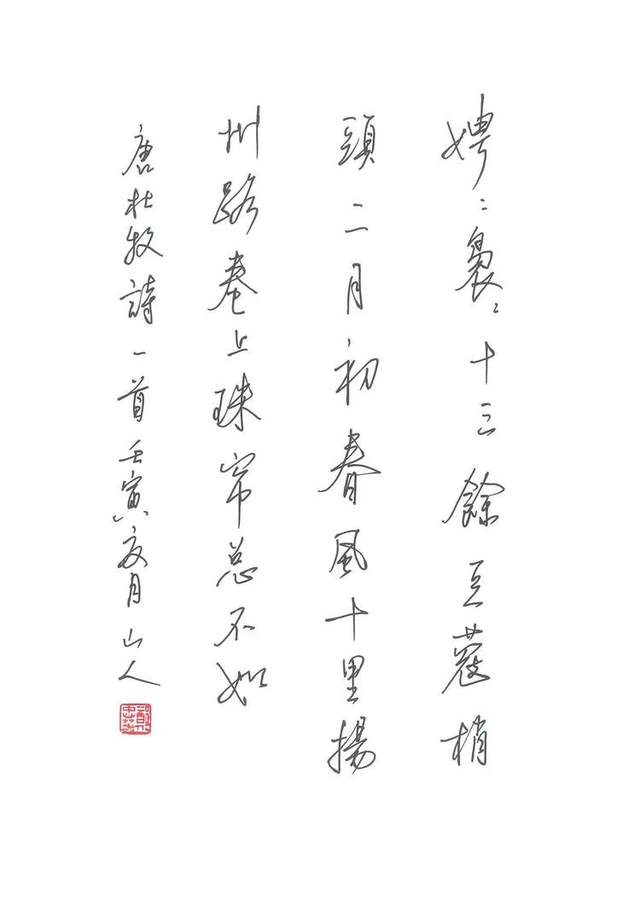 娉〻裊〻十三餘豆蔻梢
頭二月初春風十里揚
州路卷上珠帘总不如
唐杜牧詩一首壬寅夏月山人